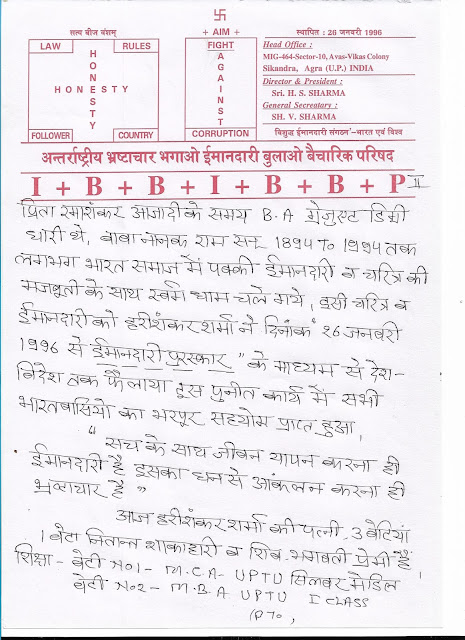 सत्य बीज वंशम्
卐
+ AIM +
स्थापित : 26 जनवरी 1996
LAW RULES
HONESTY
HONESTY
FOLLOWER COUNTRY
FIGHT
AGAINST
CORRUPTION
Head Office :
MIG-464-Sector-10, Avas-Vikas Colony
Sikandra, Agra (U.P.) INDIA
Director & President :
Sri. H. S. SHARMA
General Secreatury :
SH. V. SHARMA
विशुद्ध ईमानदारी संगठन'-भारत एवं विश्व
अन्तर्राष्ट्रीय भ्रष्टाचार भगाओ ईमानदारी बुलाओ बैचारिक परिषद
I + B + B + I + B + B + P II
पिता रमाशंकर आजादी के समय B.A ग्रेजुएट डिग्री
धारी थे, बाबा नानक राम सन् 1894 TO 1994 तक
लगभग भारत समाज में पक्की ईमानदारी व चरित्र की
मजबूती के साथ स्वर्ग धाम चले गये, इसी चरित्र व
ईमानदारी को हरीशंकर शर्मा ने दिनांक 26 जनवरी
1996 से ईमानदारी पुरस्कार" के माध्यम से देश-
विदेश तक फैलाया इस पुनीत कार्य में सभी
भारतवासियो का भरपूर सहयोग प्राप्त हुआ,
"सच के साथ जीवन यापन करना ही
ईमानदारी है इसका धन से आंकलन करना ही
भ्रष्टाचार है"
आज हरीशंकर शर्मा की पत्नी 3 बेटियां
1 बेटा नितान्त शाकाहारी व शिव-भगवती प्रेमी है,
शिक्षा - बेटी No1- M.C.A- UPTU सिलवर मेडिल
बेटी No2- M.B.A UPTU I CLASS
(PTO,